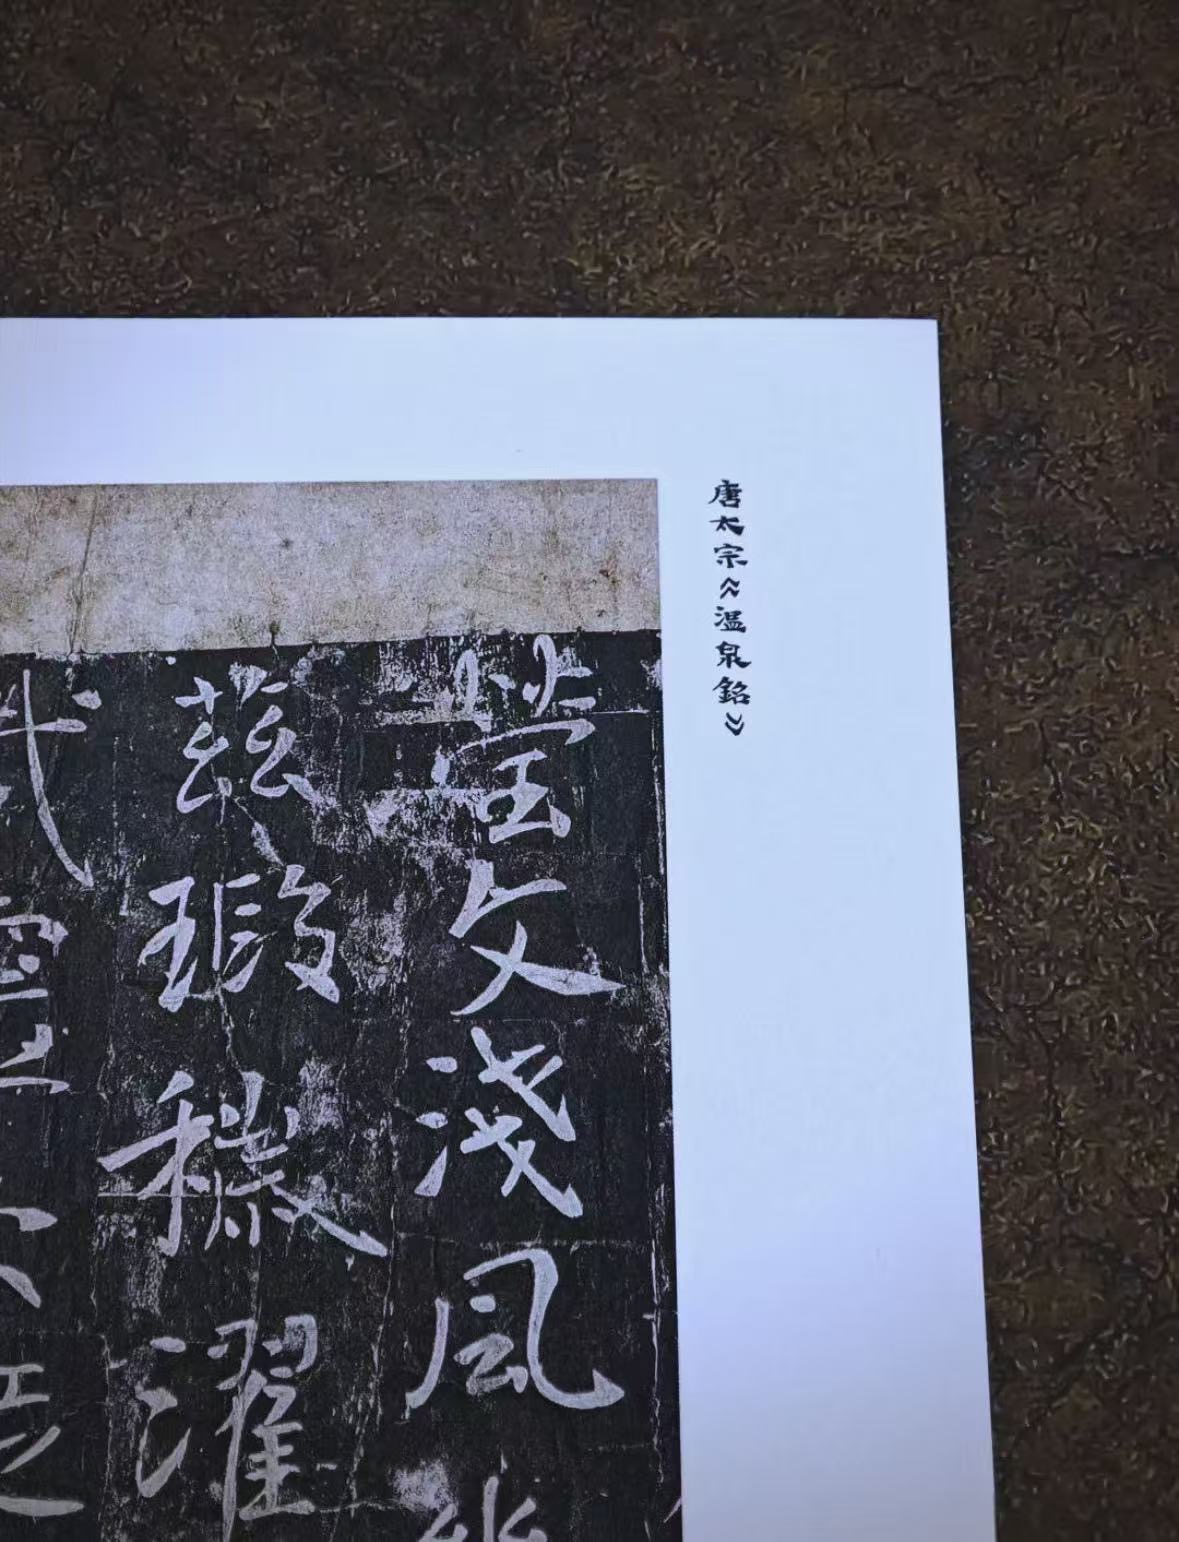 唐太宗《温泉銘》
瑩文淺風
茲瑕穢濯